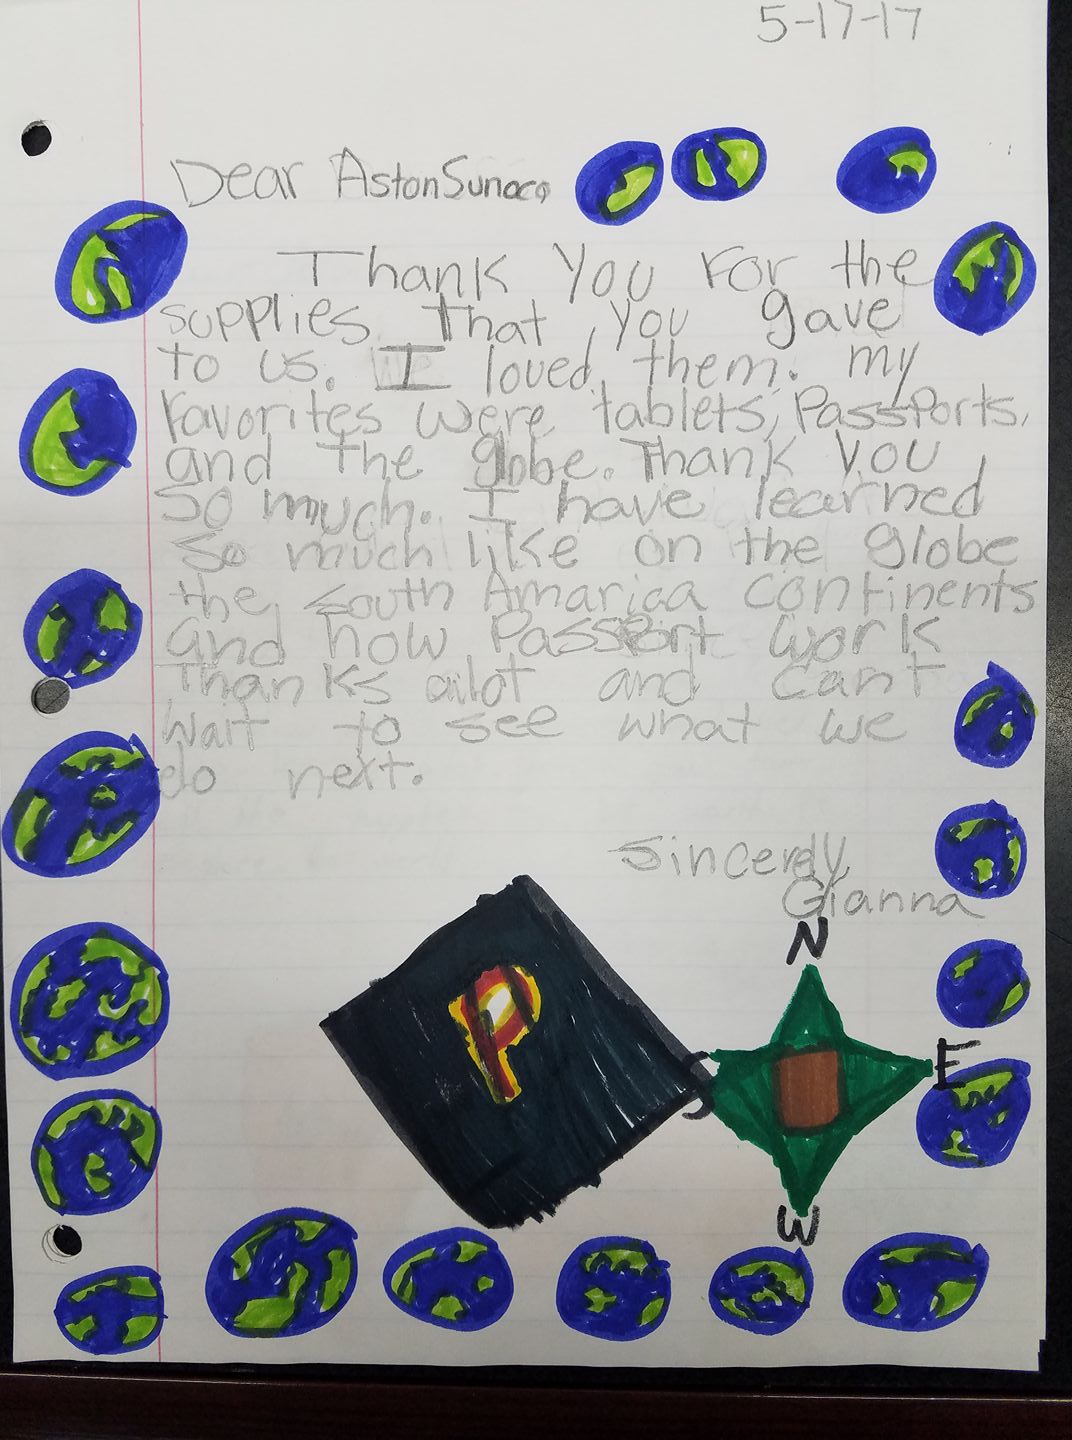 5-17-17
Dear Aston Sunoco,
Thank You For the
supplies that you gave
to us. I loved them. my
Favorites were tablets, Passports,
and the globe. Thank you
so much. I have learned
so much like on the globe
the south Amaricaa continents
and how Passport work
Thanks alot and cant
wait to see what we
do next.
Sincerely,
Gianna
N
P
S
E
W